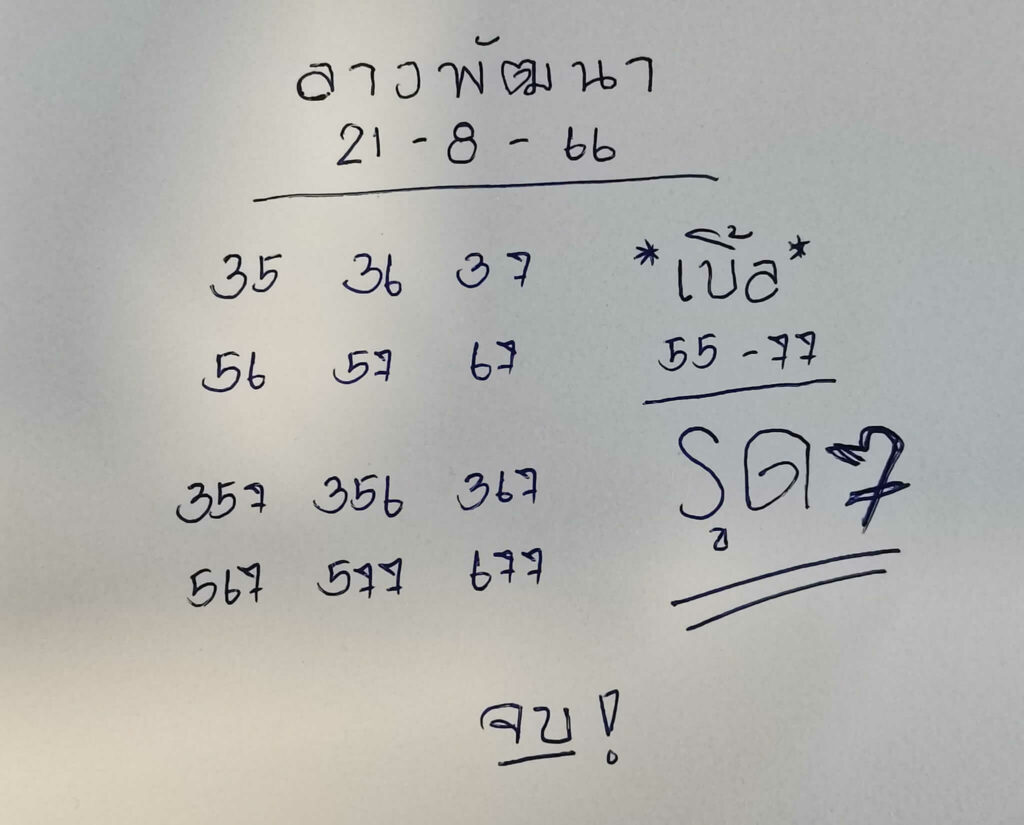 ลาวพัฒนา
21 - 8 - 66
35 36 37
56 57 67
*เบิ้ล*
55 - 77
357 356 367
567 577 677
รูด 7
จบ!